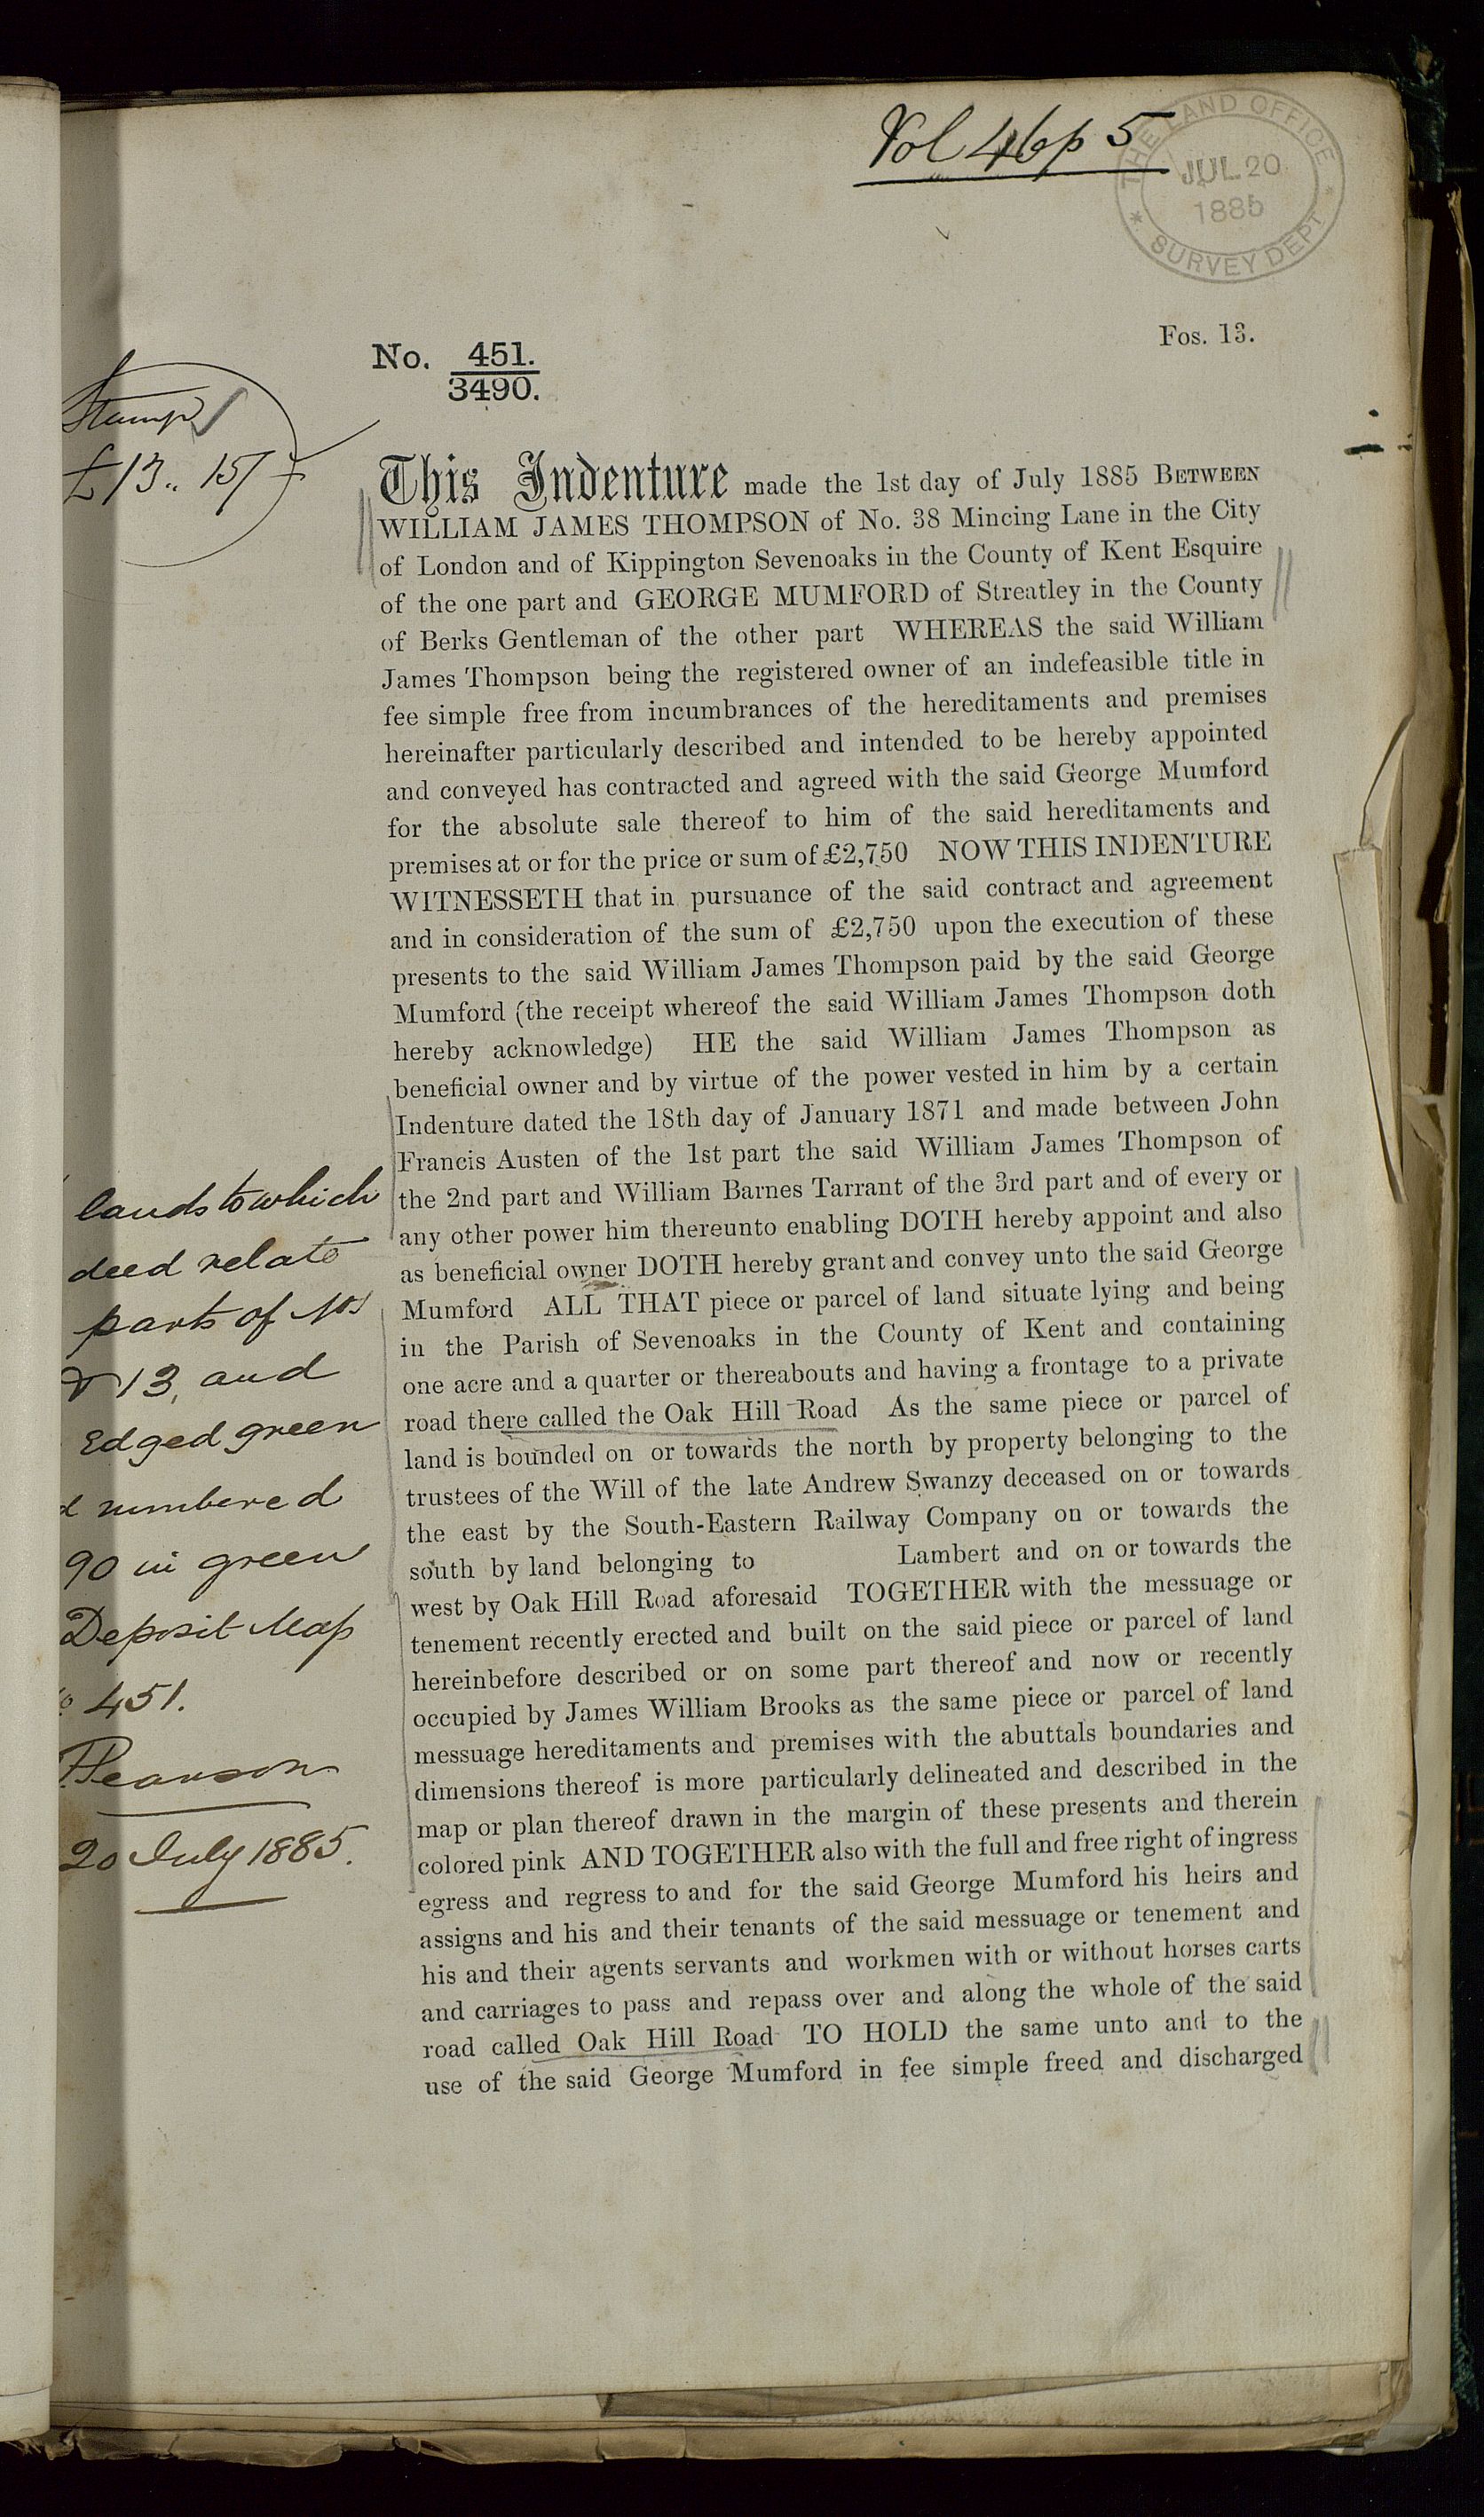 Vol 46 p 5
THE LAND OFFICE
JUL 20
1885
SURVEY DEPT
Fos. 13.
No. 451.
3490.
Stamp
£13.. 15/
This Indenture made the 1st day of July 1885 BETWEEN
WILLIAM JAMES THOMPSON of No. 38 Mincing Lane in the City
of London and of Kippington Sevenoaks in the County of Kent Esquire
of the one part and GEORGE MUMFORD of Streatley in the County
of Berks Gentleman of the other part WHEREAS the said William
James Thompson being the registered owner of an indefeasible title in
fee simple free from incumbrances of the hereditaments and premises
hereinafter particularly described and intended to be hereby appointed
and conveyed has contracted and agreed with the said George Mumford
for the absolute sale thereof to him of the said hereditaments and
premises at or for the price or sum of £2,750 NOW THIS INDENTURE
WITNESSETH that in pursuance of the said contract and agreement
and in consideration of the sum of £2,750 upon the execution of these
presents to the said William James Thompson paid by the said George
Mumford (the receipt whereof the said William James Thompson doth
hereby acknowledge) HE the said William James Thompson as
beneficial owner and by virtue of the power vested in him by a certain
Indenture dated the 18th day of January 1871 and made between John
Francis Austen of the 1st part the said William James Thompson of
the 2nd part and William Barnes Tarrant of the 3rd part and of every or
any other power him thereunto enabling DOTH hereby appoint and also
as beneficial owner DOTH hereby grant and convey unto the said George
Mumford ALL THAT piece or parcel of land situate lying and being
in the Parish of Sevenoaks in the County of Kent and containing
one acre and a quarter or thereabouts and having a frontage to a private
road there called the Oak Hill Road As the same piece or parcel of
land is bounded on or towards the north by property belonging to the
trustees of the Will of the late Andrew Swanzy deceased on or towards
the east by the South-Eastern Railway Company on or towards the
south by land belonging to Lambert and on or towards the
west by Oak Hill Road aforesaid TOGETHER with the messuage or
tenement recently erected and built on the said piece or parcel of land
hereinbefore described or on some part thereof and now or recently
occupied by James William Brooks as the same piece or parcel of land
messuage hereditaments and premises with the abuttals boundaries and
dimensions thereof is more particularly delineated and described in the
map or plan thereof drawn in the margin of these presents and therein
colored pink AND TOGETHER also with the full and free right of ingress
egress and regress to and for the said George Mumford his heirs and
assigns and his and their tenants of the said messuage or tenement and
his and their agents servants and workmen with or without horses carts
and carriages to pass and repass over and along the whole of the said
road called Oak Hill Road TO HOLD the same unto and to the
use of the said George Mumford in fee simple freed and discharged
lands to which
deed relate
parts of Nos
13, and
Edged green
numbered
90 in green
Deposit Map
451.
Pearson
20 July 1885.